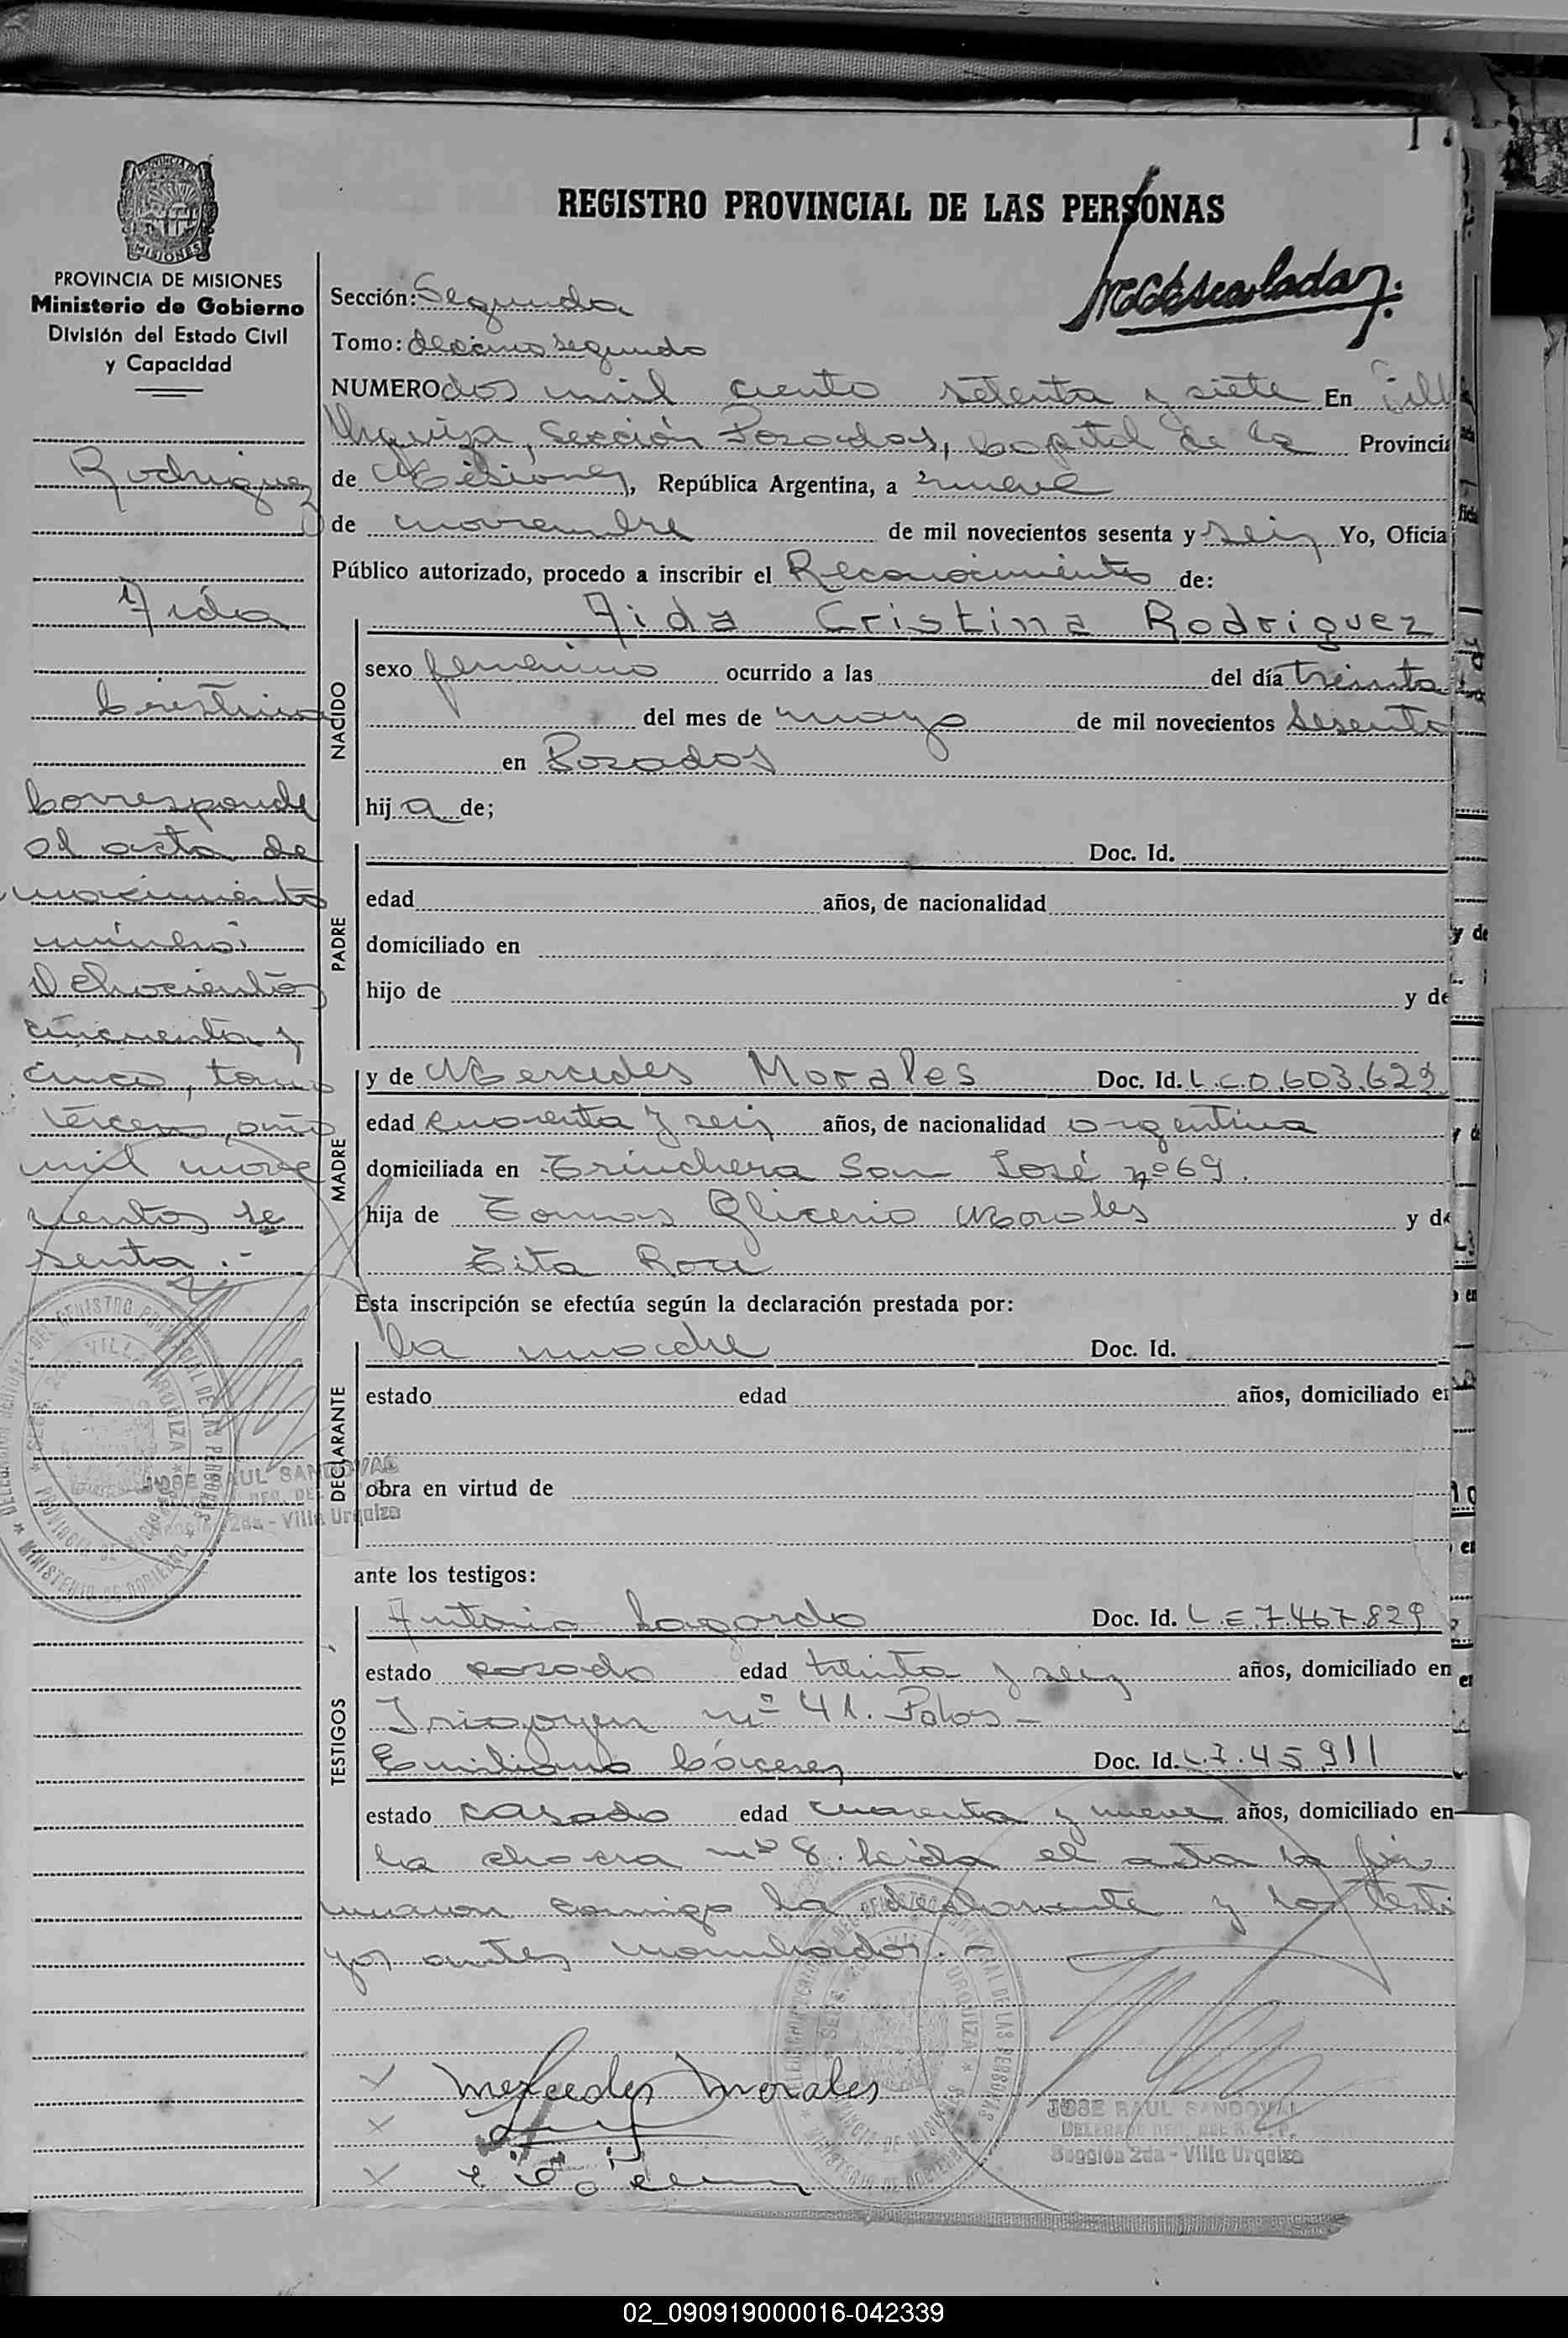 REGISTRO PROVINCIAL DE LAS PERSONAS
PROVINCIA DE MISIONES
Ministerio de Gobierno
División del Estado Civil
y Capacidad
Rodriguez
Aida
Cristina
Corresponde
al acta de
nacimiento
número:
Ochocientos
cincuenta y
cinco, tomo
tercero, año
mil nove
cientos se
senta.-
JOSE RAUL SANDOVAL
Sección 2da - Villa Urquiza
Sección: Segunda
Tomo: decimo segundo
NUMERO dos mil ciento setenta y siete En Vill
Urquiza, Sección Posadas, Capital de la Provincia
de Misiones, República Argentina, a nueve
de noviembre de mil novecientos sesenta y seis Yo, Oficial
Público autorizado, procedo a inscribir el Reconocimiento de:
NACIDO
Aida Cristina Rodriguez
sexo femenino ocurrido a las del día treinta
del mes de mayo de mil novecientos sesenta
en Posadas
hij a de;
PADRE
Doc. Id.
edad años, de nacionalidad
domiciliado en
hijo de y de
MADRE
y de Mercedes Morales Doc. Id. L.C.0.603.629
edad cuarenta y seis años, de nacionalidad argentina
domiciliada en Trinchera San José nº 69.
hija de Tomas Glicerio Morales y de
Tita Roa
Esta inscripción se efectúa según la declaración prestada por:
DECLARANTE
la madre Doc. Id.
estado edad años, domiciliado en
obra en virtud de
ante los testigos:
TESTIGOS
Antonio Doc. Id. L.E.7.467.829
estado casado edad treinta y seis años, domiciliado en
Irigoyen nº 41. Pdas -
Emiliano Cáceres Doc. Id. L.7.45.911
estado casado edad cuarenta y nueve años, domiciliado en
la chacra nº 8. Leída el acta la fir
maron conmigo la declarante y los testi
gos antes nombrados.-
Mercedes Morales
JOSE RAUL SANDOVAL
Sección 2da - Villa Urquiza
02_090919000016-042339